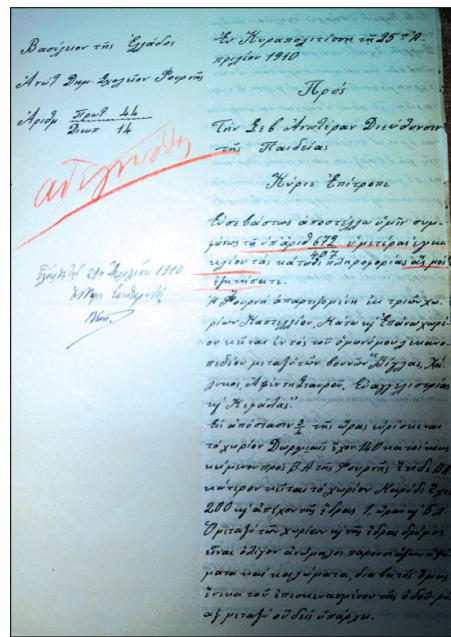 Βασίλειον τῆς Ἑλλάδος
Ἀνώτ Δημ. Σχολεῖον Φουρνῆς
Ἀριθμ Πρωτ 44
Διεκπ 14
29 Ἀπριλίου 1910
Ἐν Κυραπολιτίσση τῇ 25ῃ Ἀ-
πριλίου 1910
Πρὸς
Τὴν Σεβ Ἀνωτέραν Διεύθυνσιν
τῆς Παιδείας
Κύριε Ἐπίτροπε
Εὐσεβάστως ἀποστέλλω ὑμῖν συμ-
φώνως τῇ ὑπ' ἀριθ 672 ὑμετέρᾳ ἐγκυ-
407
κλίῳ τὰς κάτωθι πληροφορίας ἃς μοὶ
ἐζητήσατε.
Ἡ Φουρνὴ ἀπαρτιζομένη ἐκ τριῶν χω-
ρίων Καστελλίου, Κάτω κ' Ἐπάνω χωρί-
ου κεῖται ἐντὸς τοῦ ὁμωνύμου λεκανο-
πεδίου μεταξὺ τῶν βουνῶν "Βίγλας, Χά-
Ἀφέντη Σταυροῦ, Εὐαγγελιστρίας
κ' Κεφάλας".
Εἰς ἀπόστασιν 3/4 τῆς ὥρας εὑρίσκεται
τὸ χωρίον Δωριαὶς ἔχον 140 κατοίκους
κείμενον πρὸς Β.Α τῆς Φουρνῆς
κεῖται τὸ χωρίον Καρύδι
200 κ' ἀπέχον τῆς ἕδρας 1. ὥραν κ'
Ὁ μεταξὺ τῶν χωρίων κ' τῆς ἕδρας δρόμος
εἶναι ὀλίγον ἀνώμαλος παρουσιάζων
διαβατὸς ὅμως
ἕνεκα τοῦ ἐπισκευασμένου τῆς ὁδοῦ
μεταξὺ οὐδεὶς ὑπάρχει.